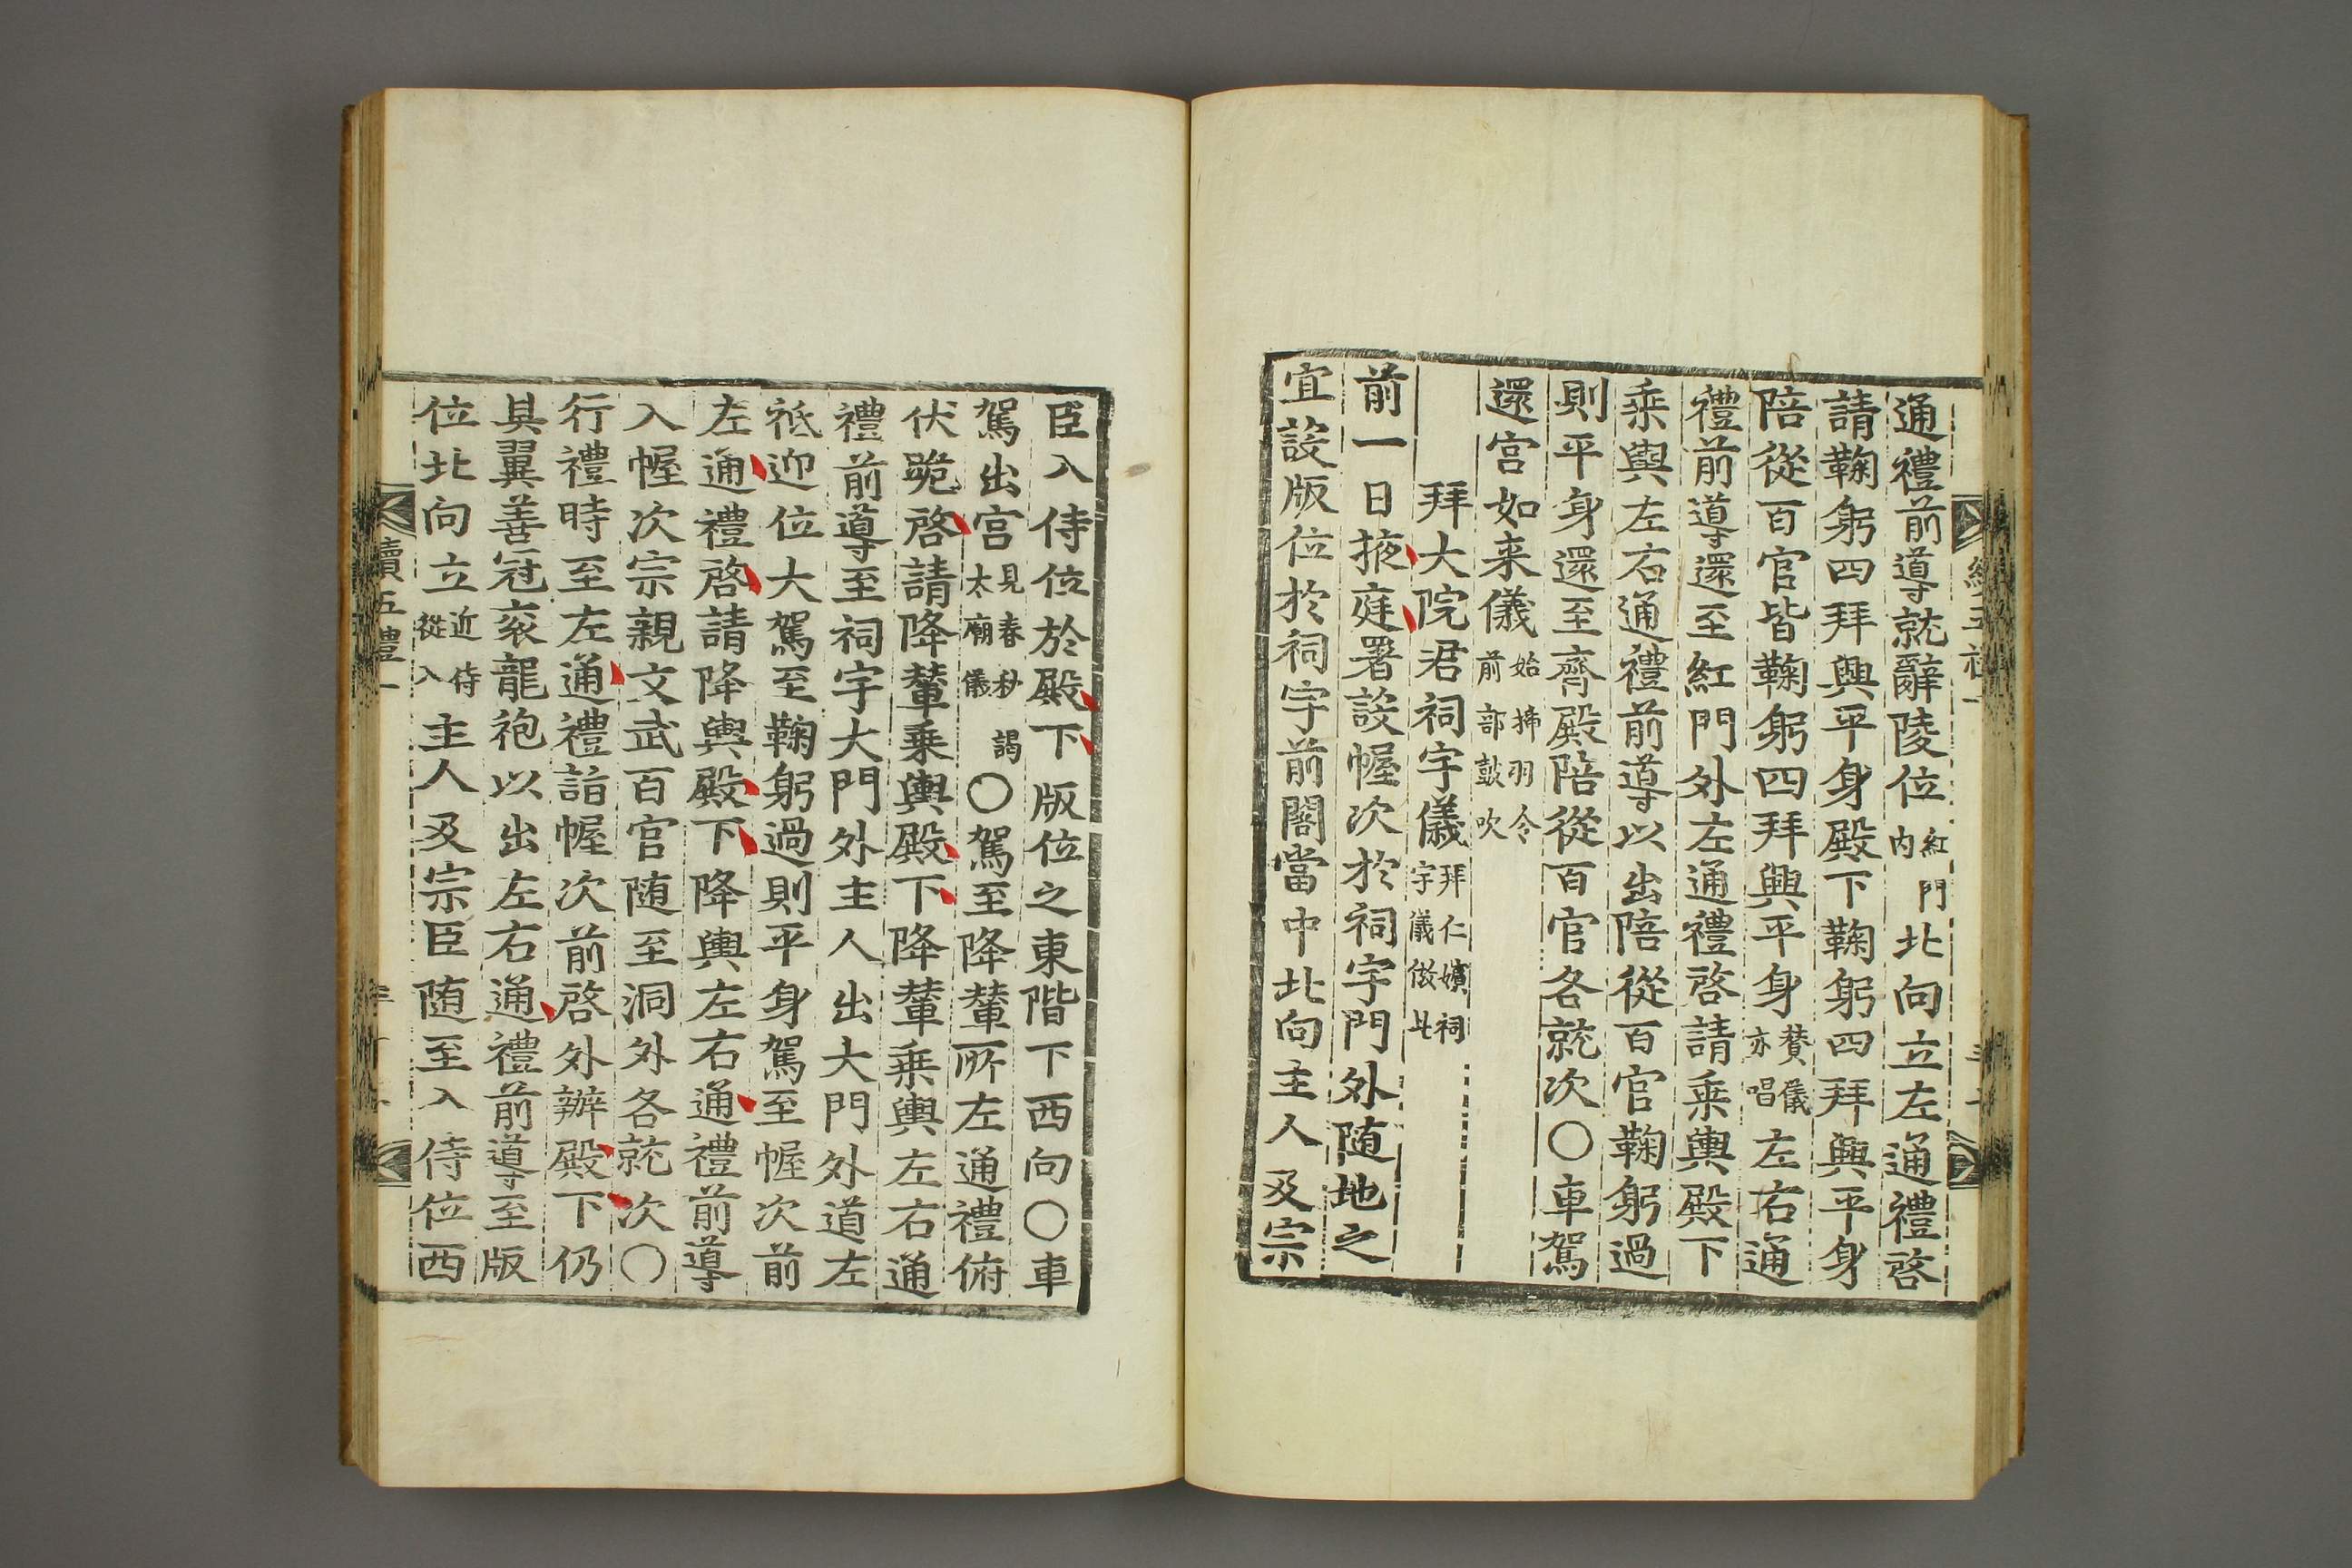 通禮前導就辭陵位紅門內北向立左通禮啓
請鞠躬四拜興平身殿下鞠躬四拜興平身
陪從百官皆鞠躬四拜興平身贊儀亦唱左右通
禮前導還至紅門外左通禮啓請乘輿殿下
乘輿左右通禮前導以出陪從百官鞠躬過
則平身還至齋殿陪從百官各就次〇車駕
還宮如来儀始拂羽令前部鼓吹
拜大院君祠宇儀拜仁嬪祠宇儀倣此
前一日掖庭署設幄次於祠宇門外随地之
宜設版位於祠宇前閤當中北向主人及宗
臣入侍位於殿下版位之東階下西向〇車
駕出宮見春秋謁太廟儀〇駕至降輦所左通禮俯
伏跪啓請降輦乘輿殿下降輦乘輿左右通
禮前導至祠宇大門外主人出大門外道左
祗迎位大駕至鞠躬過則平身駕至幄次前
左通禮啓請降輿殿下降輿左右通禮前導
入幄次宗親文武百官随至洞外各就次〇
行禮時至左通禮詣幄次前啓外辦殿下仍
具翼善冠袞龍袍以出左右通禮前導至版
位北向立近侍從入主人及宗臣随至入侍位西
續五禮一